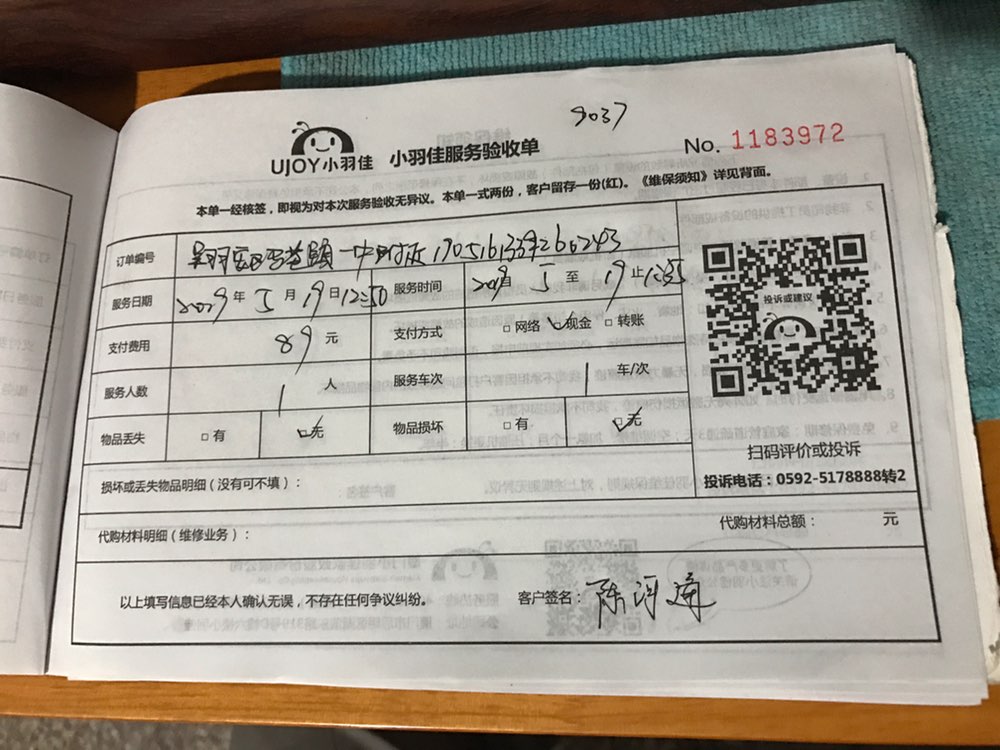 9037
UJOY小羽佳 小羽佳服务验收单
No. 1183972
本单一经核签，即视为对本次服务验收无异议。本单一式两份，客户留存一份(红)。《维保须知》详见背面。
订单编号
服务日期 2019年5月19日12:50 服务时间 5至19止
支付费用 89元 支付方式 □网络 □现金 □转账
服务人数 1人 服务车次 车/次
物品丢失 □有 □无 物品损坏 □有 □无
投诉或建议
扫码评价或投诉
投诉电话：0592-5178888转2
损坏或丢失物品明细（没有可不填）：
代购材料明细（维修业务）：
代购材料总额： 元
以上填写信息已经本人确认无误，不存在任何争议纠纷。
客户签名：陈